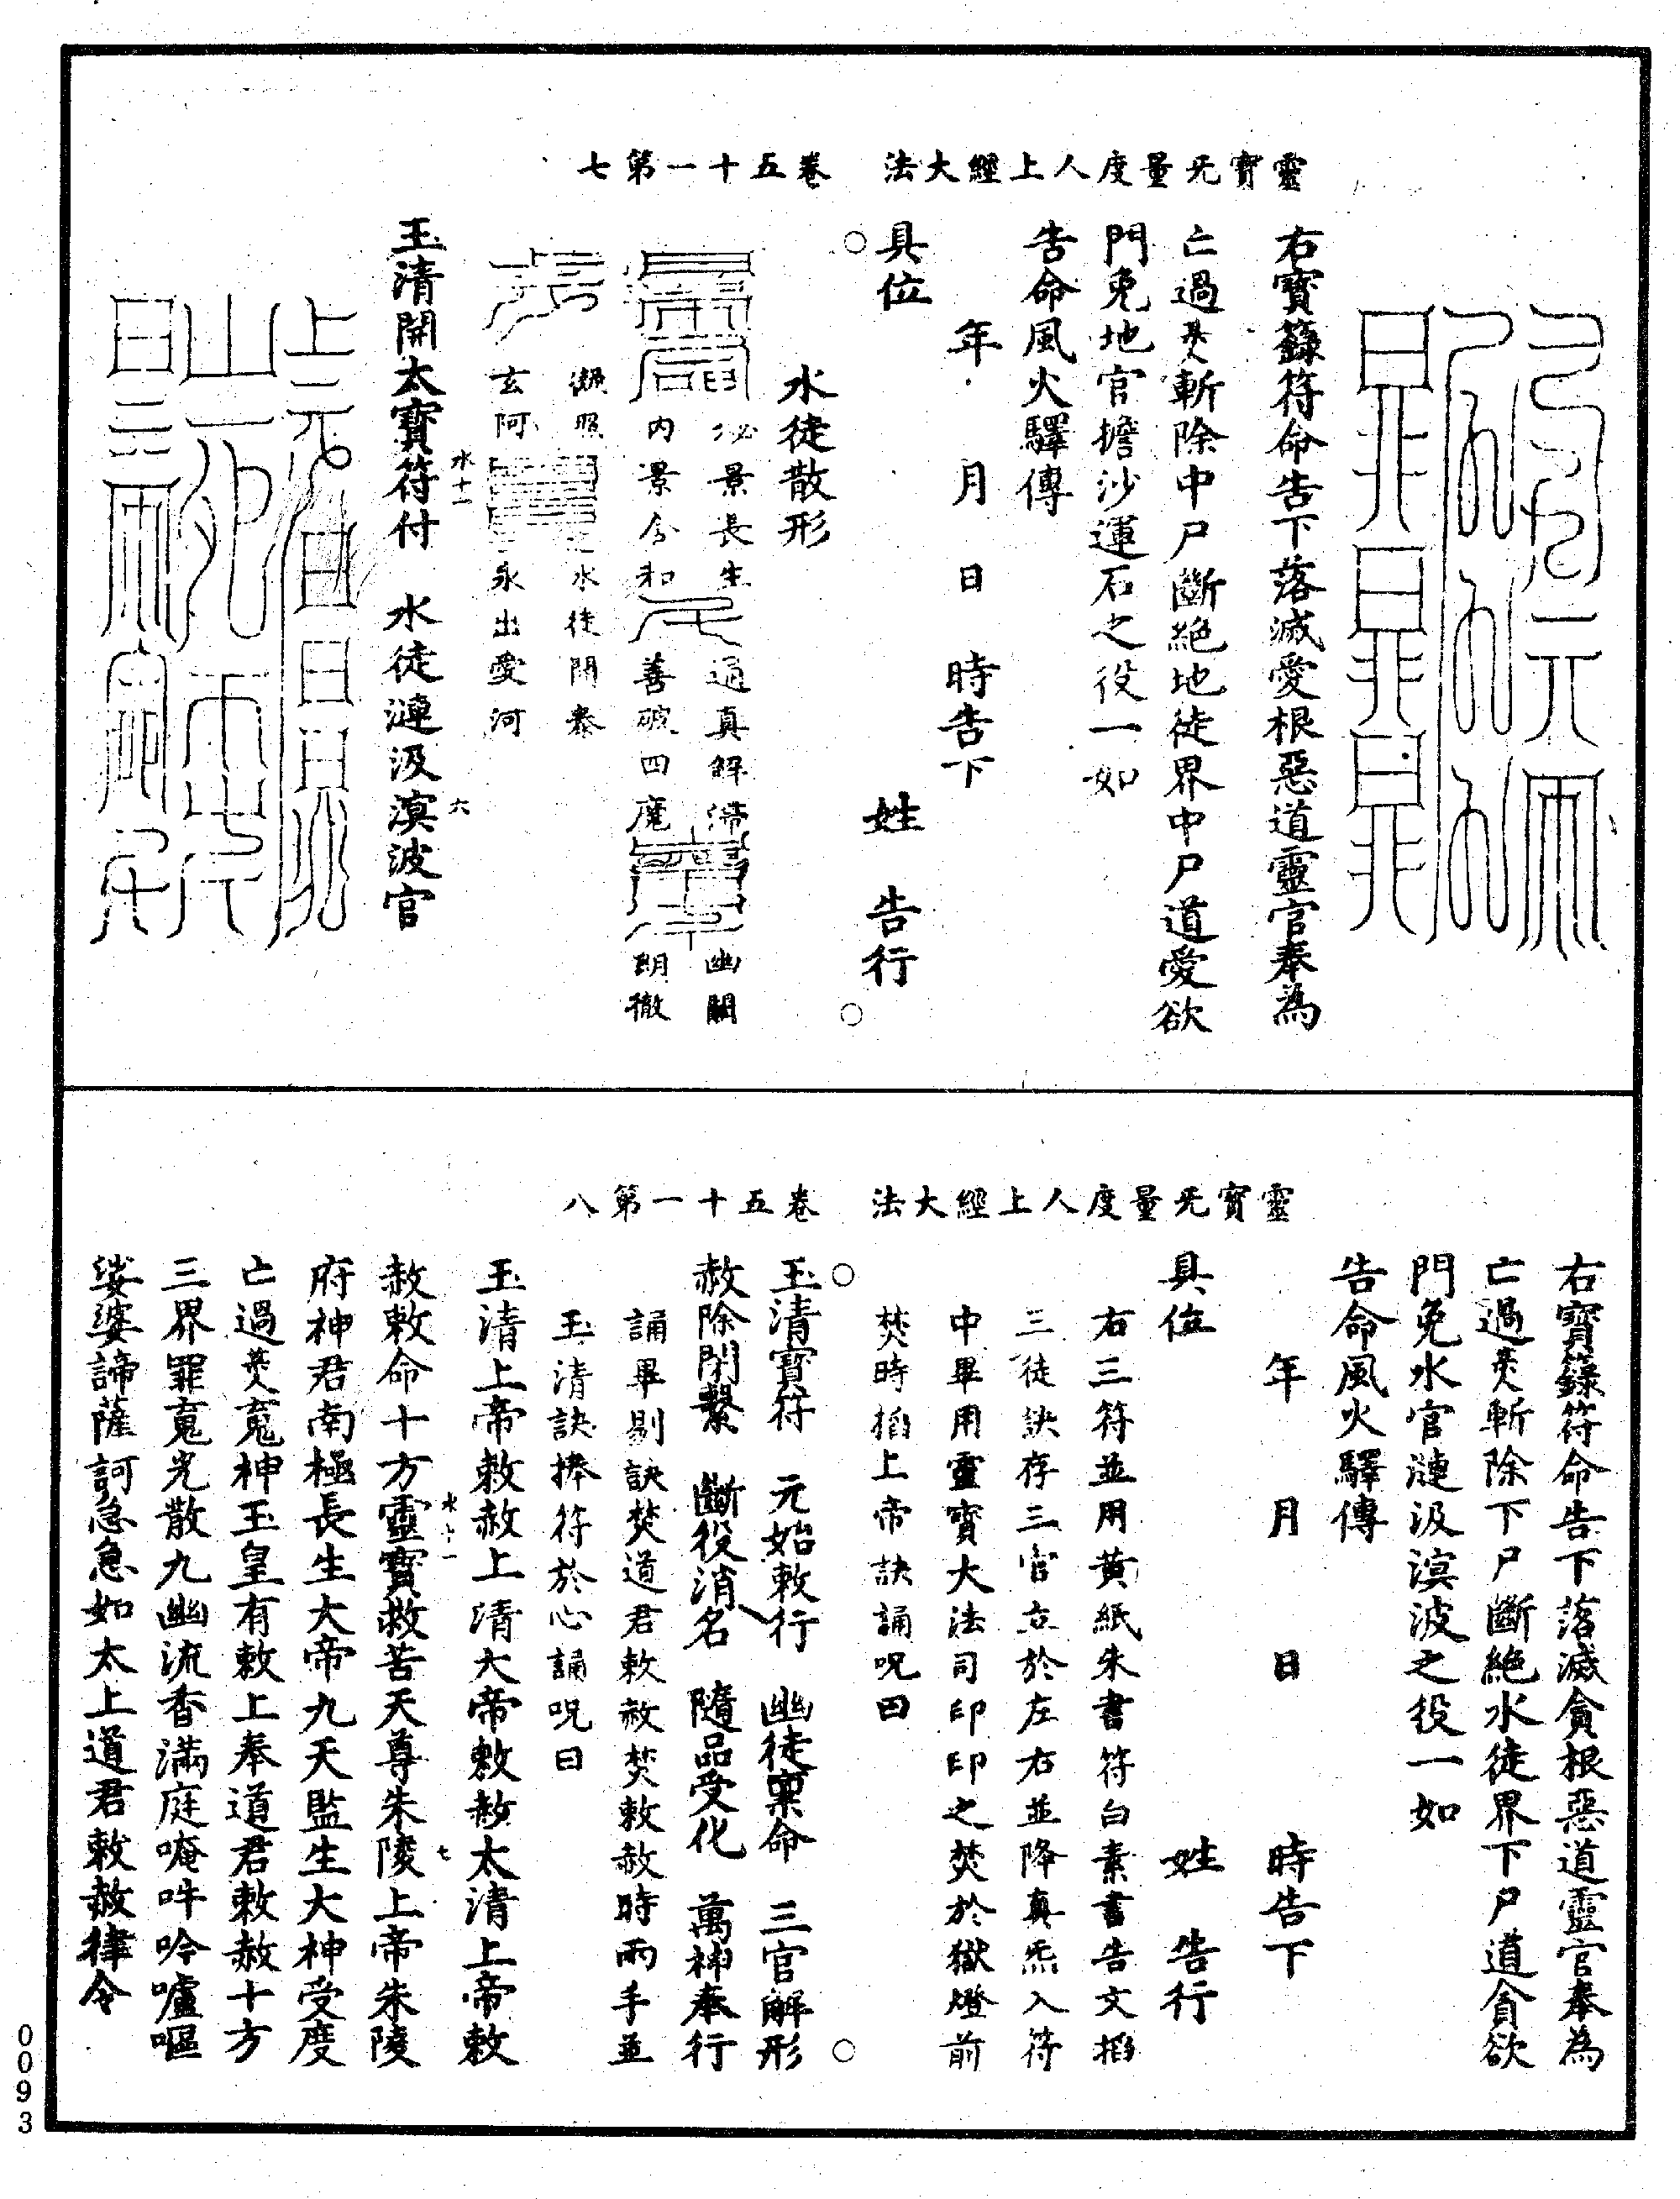 靈寶无量度人上經大法　卷五十一第七
右寶籙符命告下落滅愛根惡道靈官奉為
亡過某人斬除中尸斷絕地徒界中尸道愛欲
門免地官擔沙運石之役一如
告命風火驛傳
年　月　日　時告下
具位　姓　告行
水徒散形
祕景長生　通真解滯　幽關
內景含和　善破四魔　朗徹
水徒開泰
玄阿　永出愛河
玉清開太寶符付　水徒漣汲溟波官
水十一　六
靈寶无量度人上經大法　卷五十一第八
右寶籙符命告下落滅貪根惡道靈官奉為
亡過某人斬除下尸斷絕水徒界下尸道貪欲
門免水官漣汲溟波之役一如
告命風火驛傳
年　月　日　時告下
具位　姓　告行
右三符並用黃紙朱書符白素書告文掐
三徒訣存三官立於左右並降真炁入符
中畢用靈寶大法司印印之焚於獄燈前
焚時掐上帝訣誦呪曰
玉清寶符　元始敕行　幽徒稟命　三官解形
赦除閉繫　斷役消名　隨品受化　萬神奉行
誦畢剔訣焚道君敕赦焚敕赦時兩手並
玉清訣捧符於心誦呪曰
玉清上帝敕赦上清大帝敕赦太清上帝敕
赦敕命十方靈寶救苦天尊朱陵上帝朱陵
水十一　七
府神君南極長生大帝九天監生大神受度
亡過某人䰟神玉皇有敕上奉道君敕赦十方
三界罪䰟光散九幽流香滿庭唵吽吟嚧嘔
娑婆諦薩訶急急如太上道君敕赦律令
0093